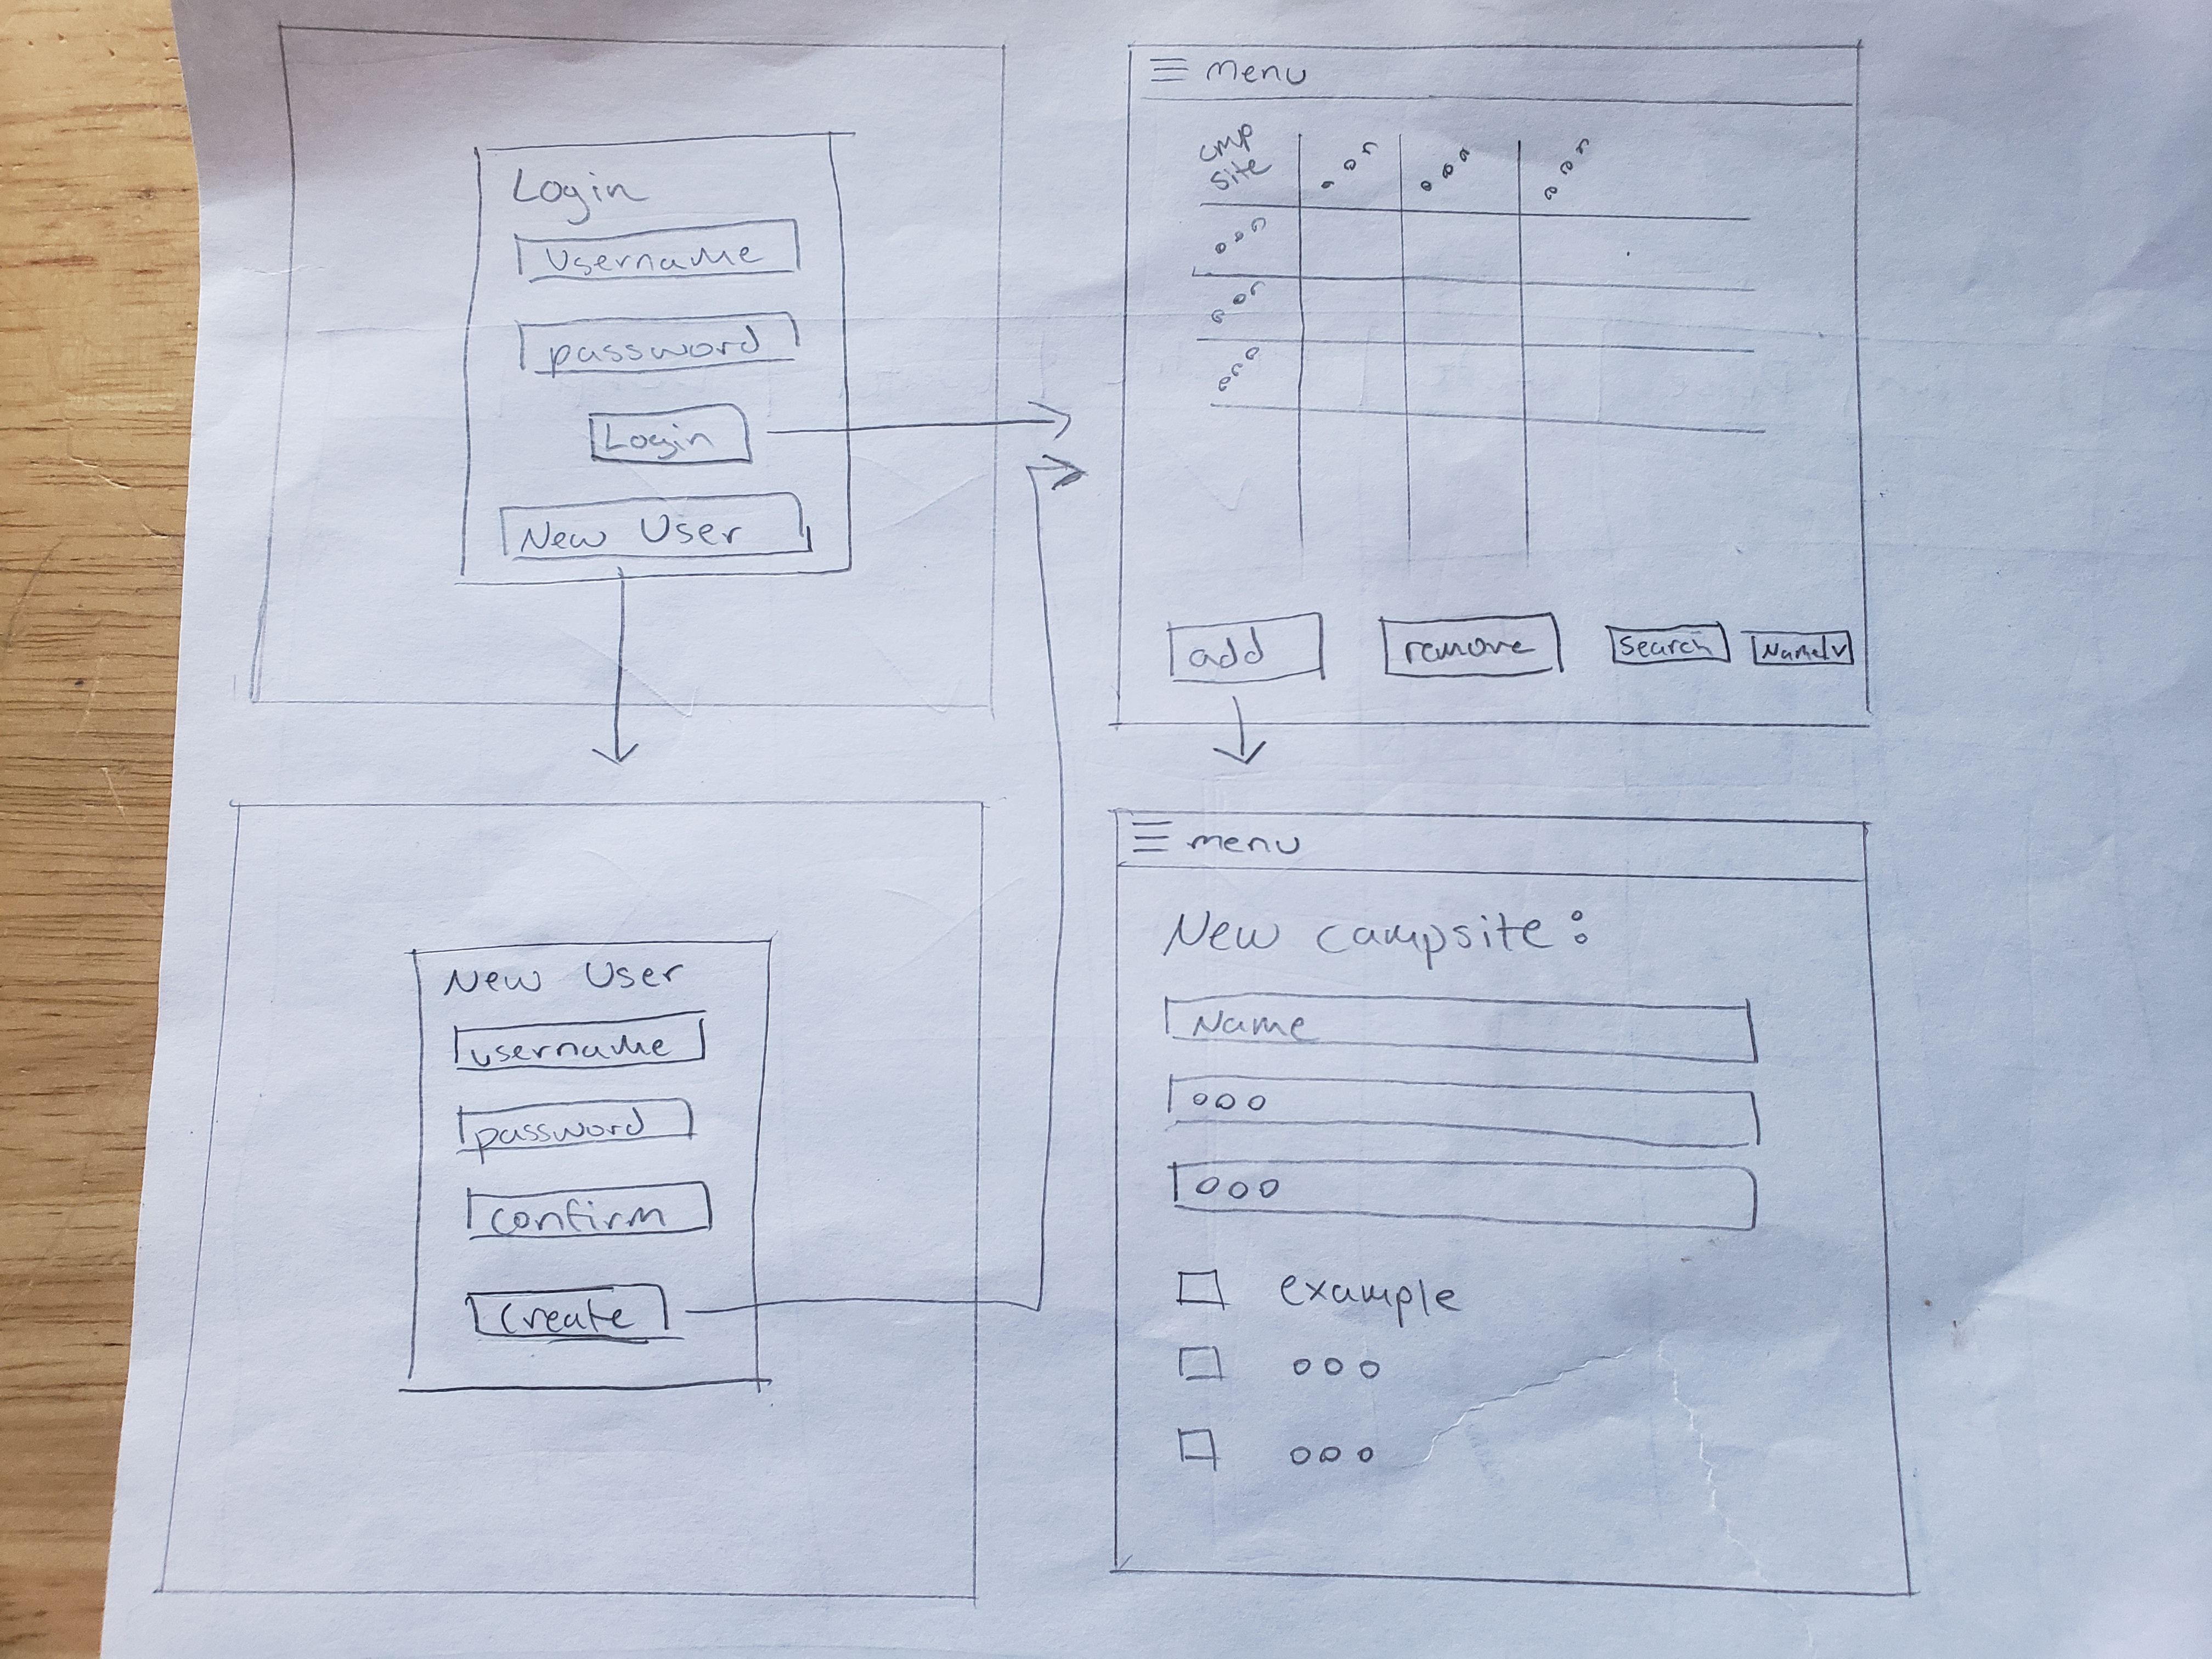 Login
Username
password
Login
New User
≡ Menu
cmp
site
add
remove
search
Name
New User
username
password
confirm
Create
≡ menu
New Campsite:
Name
example